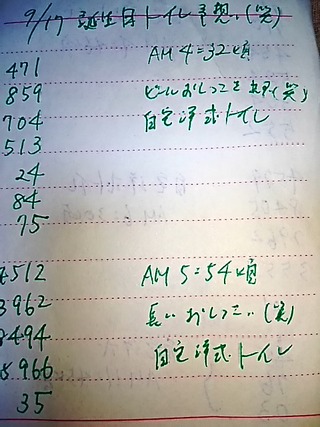 9/17 誕生日トイレ予想(笑)
AM 4=32頃
471
859 ビールおしっこを
704 自宅洋式トイレ
513
24
84
75
7512 AM 5=54頃
3962 長いおしっこい(笑)
8494 自宅洋式トイレ
8966
35